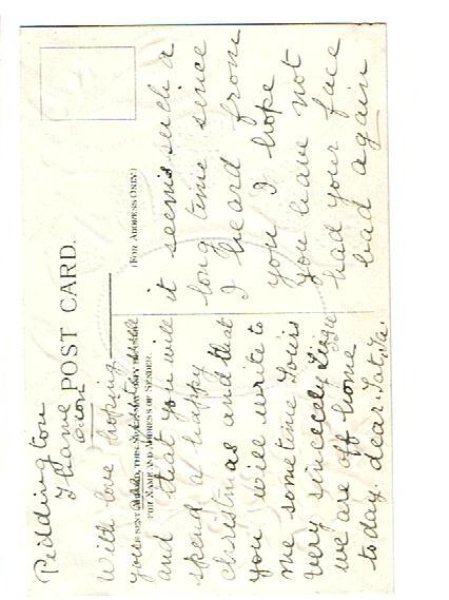 Piddington
Thame
Oxon
POST CARD.
(FOR ADDRESS ONLY)
FOR NAME AND ADDRESS OF SENDER.
With love hoping
you are quite well
and that you will
spend a happy
christmas and that
you will write to
me sometime Yours
very sincerely Lizzie
we are off home
today. dear
it seems such a
long time since
I heard from
you I hope
you have not
had your face
bad again